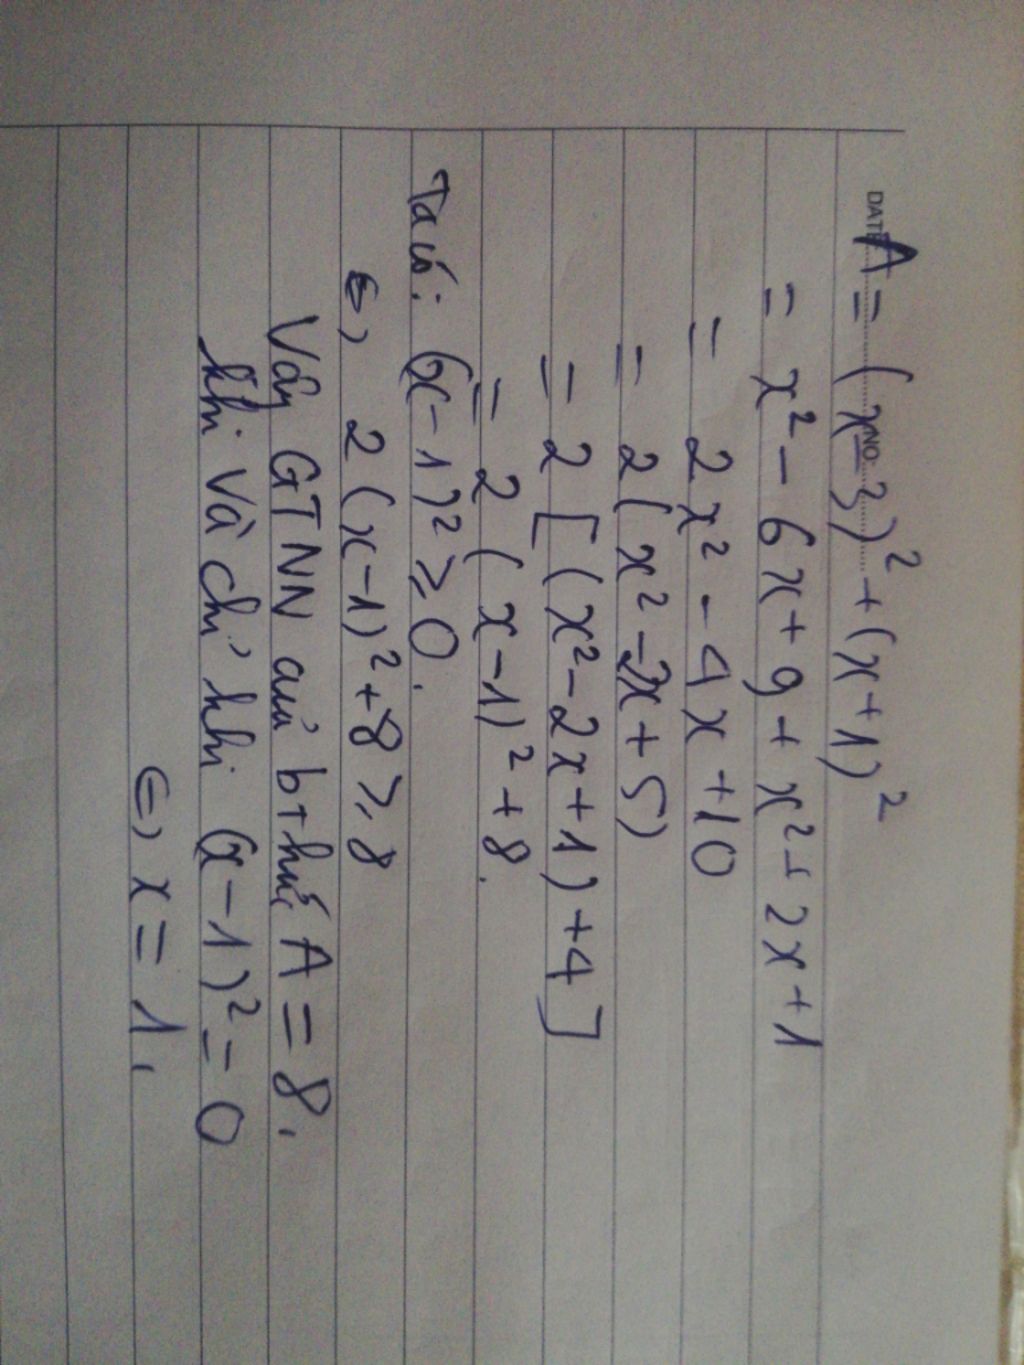 DATE
NO:
A = (x - 3)² + (x + 1)²
= x² - 6x + 9 + x² + 2x + 1
= 2x² - 4x + 10
= 2(x² - 2x + 5)
= 2[(x² - 2x + 1) + 4]
= 2(x - 1)² + 8.
Ta có: (x - 1)² ≥ 0.
⇔ 2(x - 1)² + 8 ≥ 8
Vậy GTNN của bthức A = 8.
khi và chỉ khi (x - 1)² = 0
⇔ x = 1.